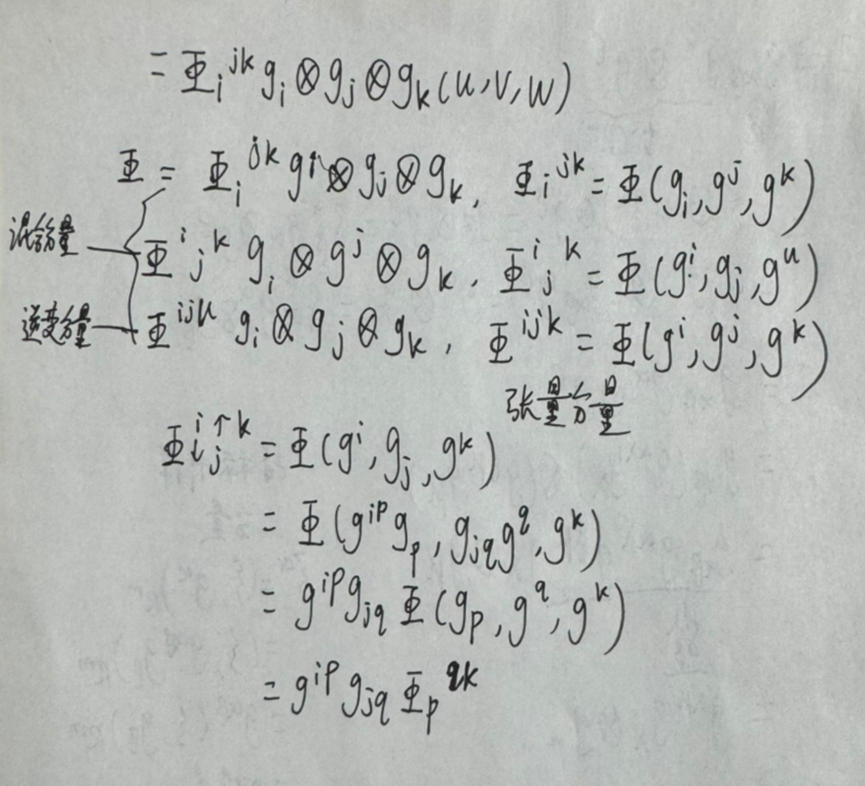 = Φᵢʲᵏ gᵢ ⊗ gⱼ ⊗ gₖ (u, v, w)
Φ = Φᵢʲᵏ gⁱ ⊗ gⱼ ⊗ gₖ, Φᵢʲᵏ = Φ(gᵢ, gʲ, gᵏ)
混合分量 Φⁱⱼᵏ gᵢ ⊗ gʲ ⊗ gₖ, Φⁱⱼᵏ = Φ(gⁱ, gⱼ, gᵏ)
逆变分量 Φⁱʲᵏ gᵢ ⊗ gⱼ ⊗ gₖ, Φⁱʲᵏ = Φ(gⁱ, gʲ, gᵏ)
张量分量
Φ↓ⁱⱼ↑ᵏ = Φ(gⁱ, gⱼ, gᵏ)
= Φ(gⁱᵖ gₚ, g_{jq} g^q, gᵏ)
= gⁱᵖ g_{jq} Φ(gₚ, g^q, gᵏ)
= gⁱᵖ g_{jq} Φₚ^{qk}